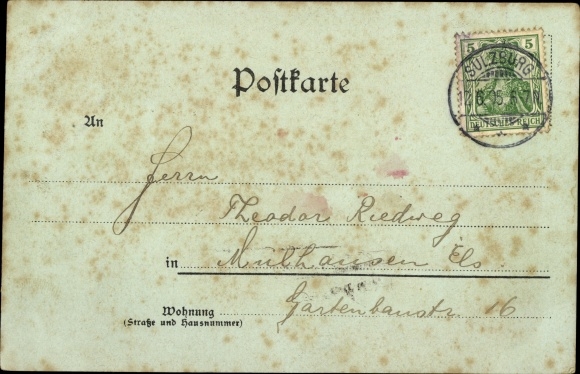 5 5
SULZBURG
DEUTSCHES REICH
Postkarte
An
Herrn
Theodor Riedweg
in Mülhausen Els.
Wohnung Gartenbaustr. 16
(Straße und Hausnummer)